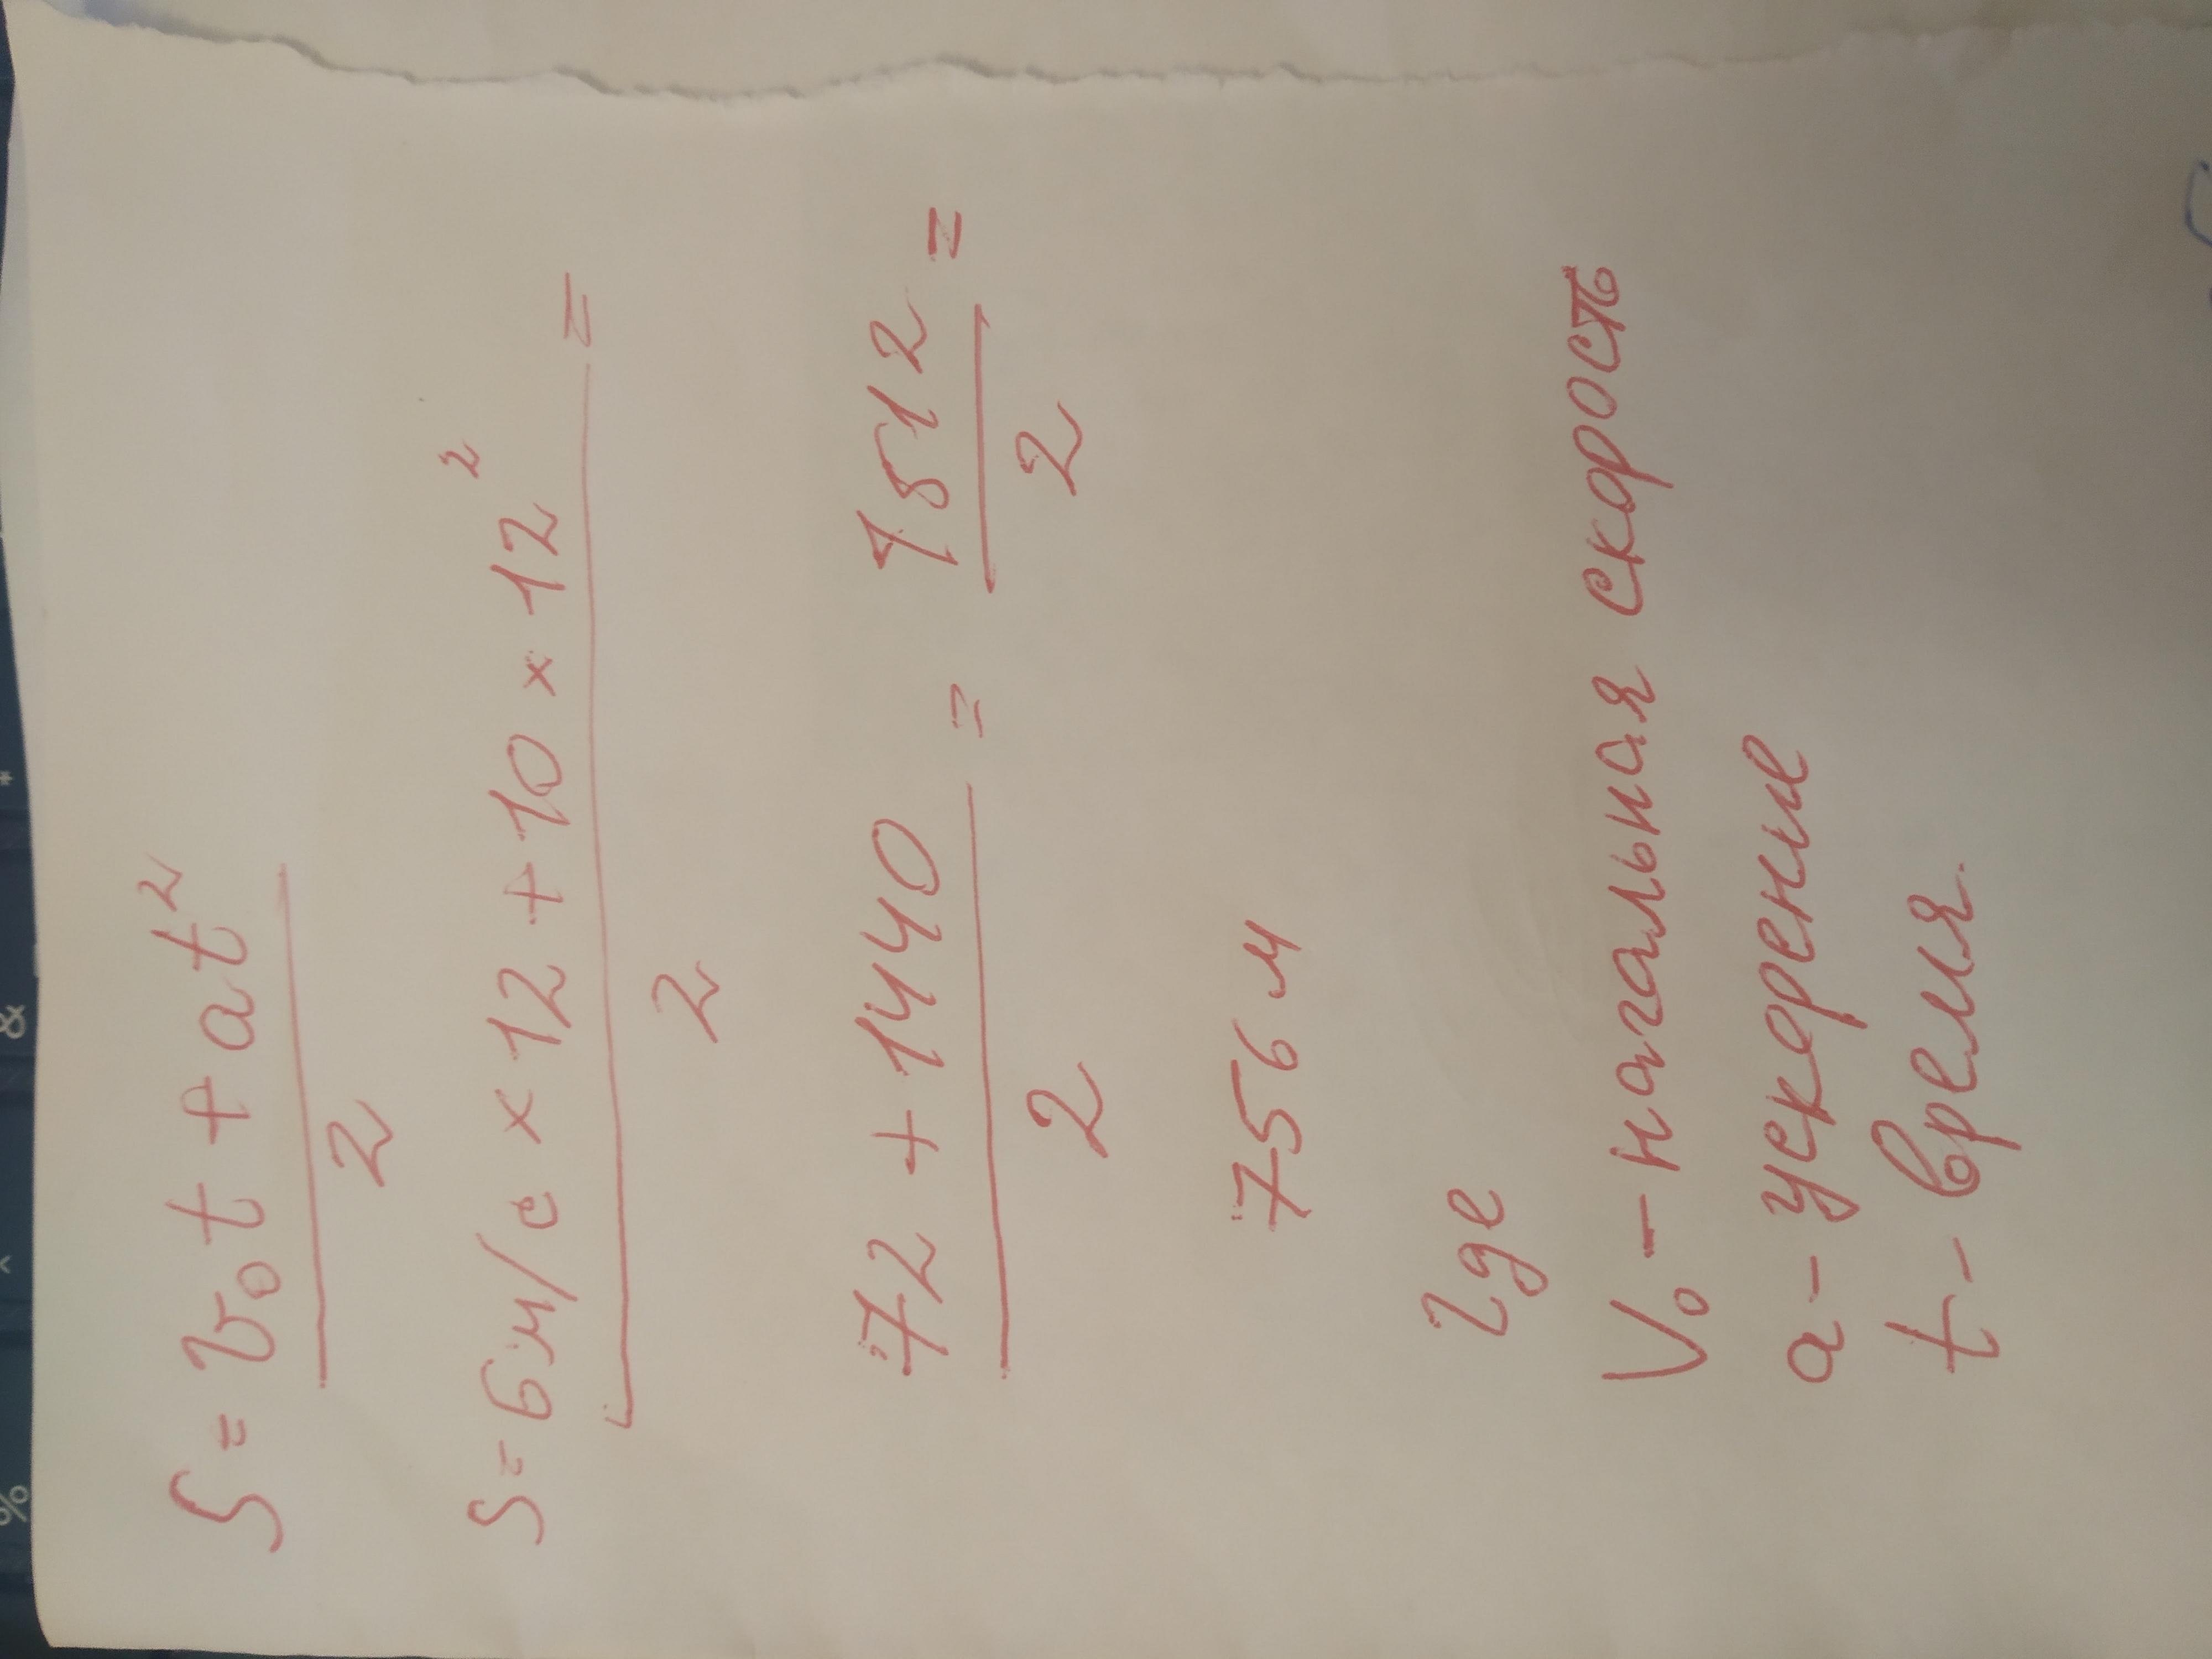 S = v₀t + at²
2
S = 6м/с × 12 + 10 × 12² =
2
72 + 1440 = 1512 =
2 2
756 м
где
V₀ - начальная скорость
a - ускорение
t - время.